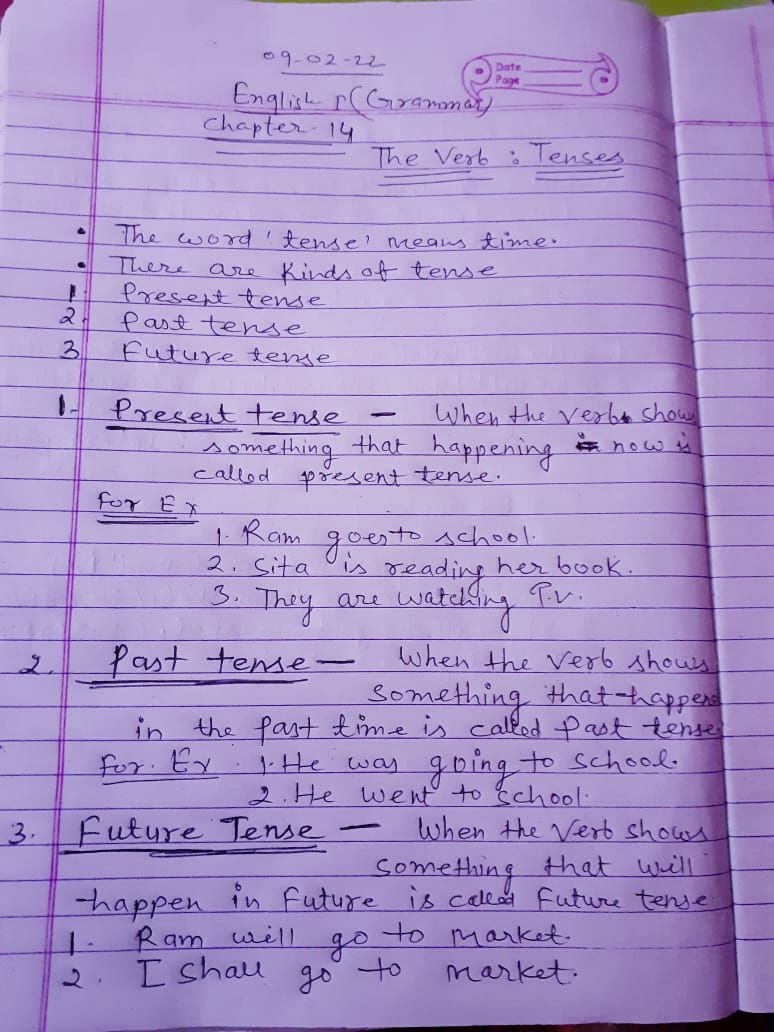 09-02-22
Date
Page
English (Grammar)
Chapter-14
The Verb : Tenses
• The word 'tense' means time.
• There are kinds of tense
1. Present tense
2. Past tense
3. Future tense
1. Present tense — When the verb shows
something that happening now is
called present tense.
For Ex
1. Ram goes to school.
2. Sita is reading her book.
3. They are watching T.V.
2. Past tense — When the verb shows
something that happens
in the past time is called Past tense
For. Ex. 1. He was going to school.
2. He went to school.
3. Future Tense — When the Verb shows
something that will
happen in future is called Future tense
1. Ram will go to market.
2. I shall go to market.